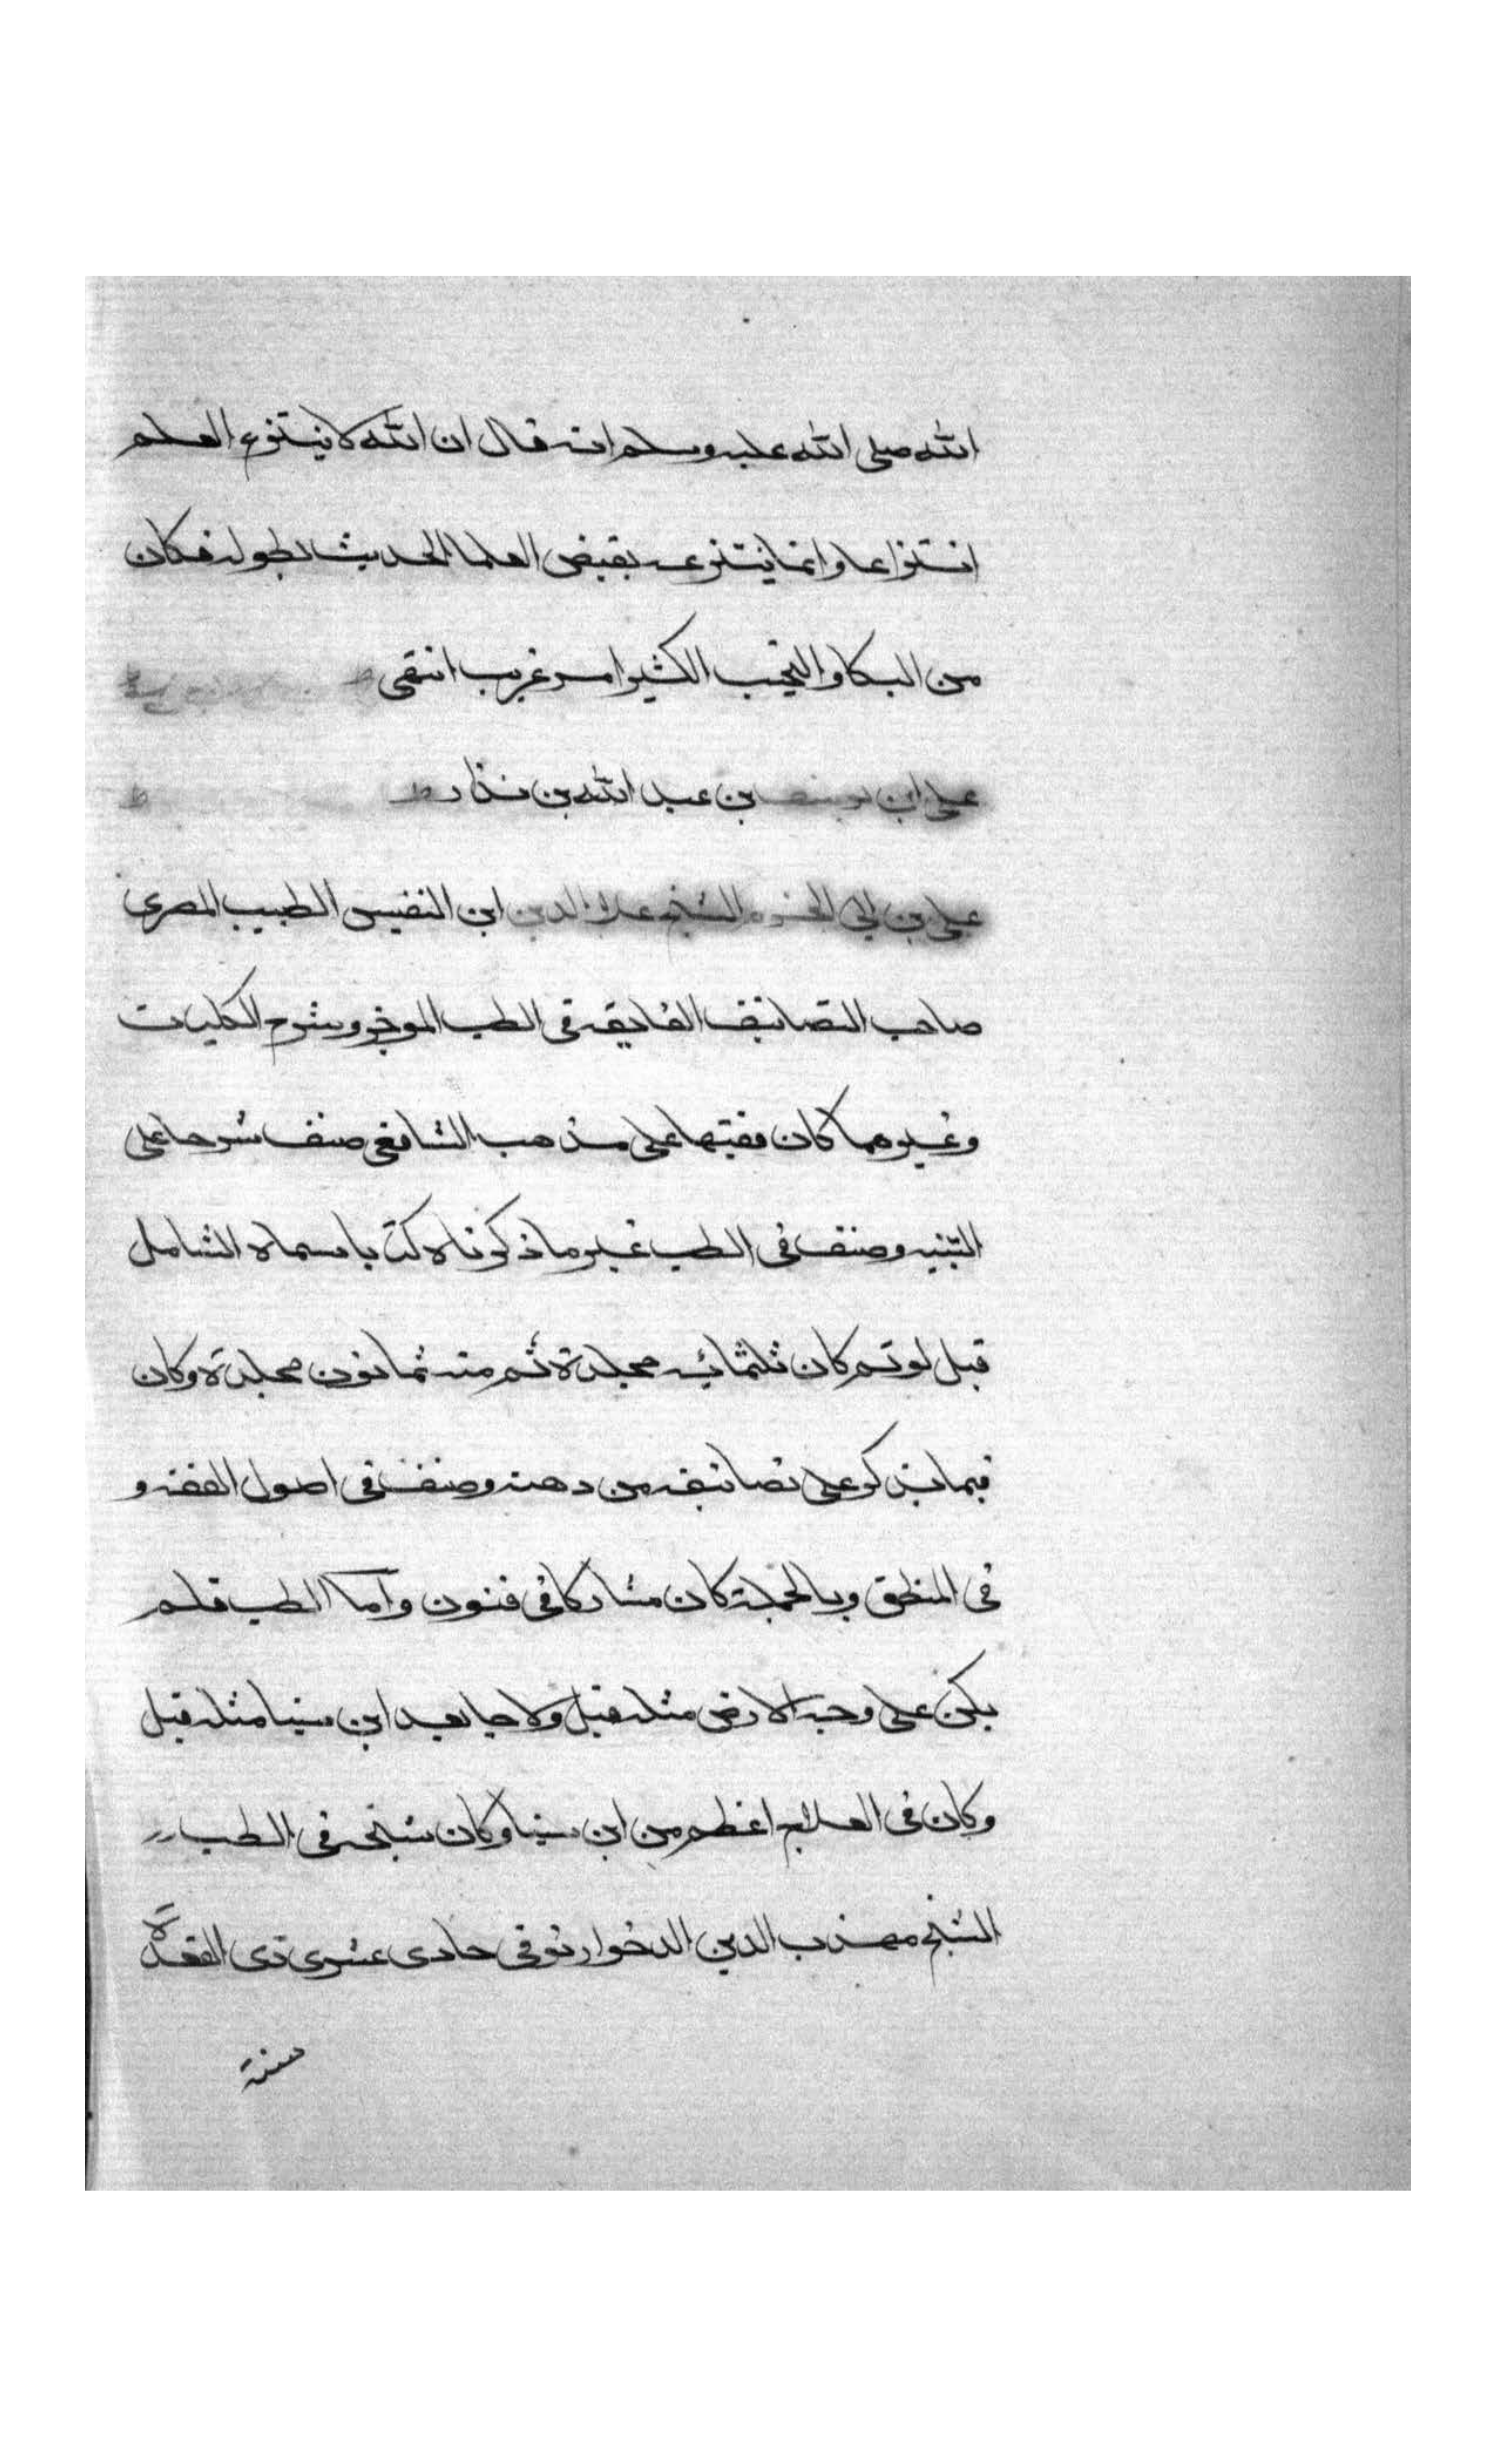 الله صلى الله عليه وسلم انه قال ان الله لا ينتزع العلم
انتزاعا وانما ينتزعه بقبض العلما الحديث بطوله فكان
من البكا والنحيب الكثير امر غريب انتهى
على ابن يوسف بن عبد الله بن
على بن ابي الحزم الشيخ علاء الدين ابن النفيس الطبيب المصرى
صاحب التصانيف الفايقه فى الطب الموجز وشرح الكليات
وغيرهما كان فقيها على مذهب الشافعى صنف شرحا على
التنبيه وصنف فى الطب غير ما ذكرناه كتابا سماه الشامل
قيل لو تم كان ثلثمائه مجلدة تم منه ثمانون مجلدة وكان
فيما يذكر على تصانيفه من ذهنه وصنف فى اصول الفقه و
فى المنطق وبالجملة كان مشاركا فى فنون وأما الطب فلم
يكن على وجه الارض مثله قيل ولا جا بعد ابن سينا مثله قيل
وكان فى العلاج اعظم من ابن سينا وكان شيخه فى الطب
الشيخ مهذب الدين الدخوار توفى حادى عشرى ذى القعدة
سنة